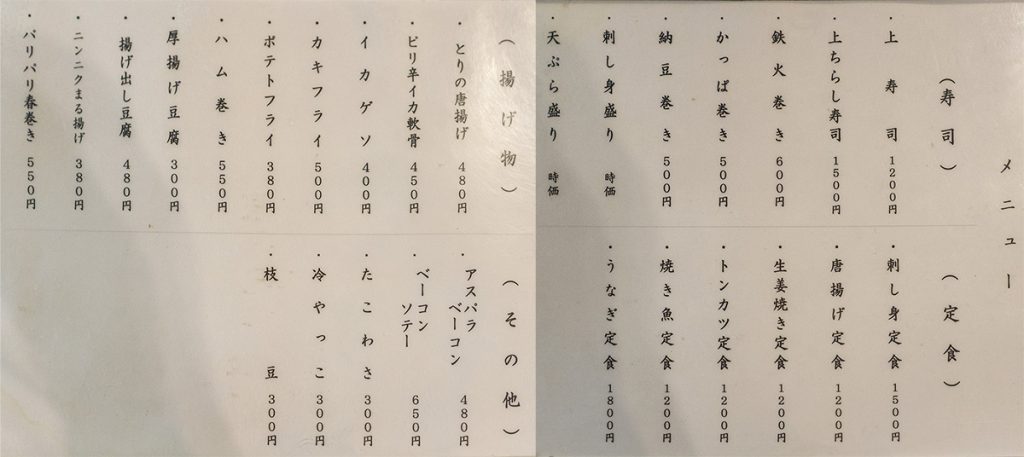 メニュー
（寿司）
・上寿司 1200円
・上ちらし寿司 1500円
・鉄火巻き 600円
・かっぱ巻き 500円
・納豆巻き 500円
・刺し身盛り 時価
・天ぷら盛り 時価
（定食）
・刺し身定食 1500円
・唐揚げ定食 1200円
・生姜焼き定食 1200円
・トンカツ定食 1200円
・焼き魚定食 1200円
・うなぎ定食 1800円
（揚げ物）
・とりの唐揚げ 480円
・ピリ辛イカ軟骨 450円
・イカゲソ 400円
・カキフライ 500円
・ポテトフライ 380円
・ハム巻き 550円
・厚揚げ豆腐 300円
・揚げ出し豆腐 480円
・ニンニクまる揚げ 380円
・パリパリ春巻き 550円
（その他）
・アスパラ
ベーコン 480円
・ベーコン
ソテー 650円
・たこわさ 300円
・冷やっこ 300円
・枝豆 300円